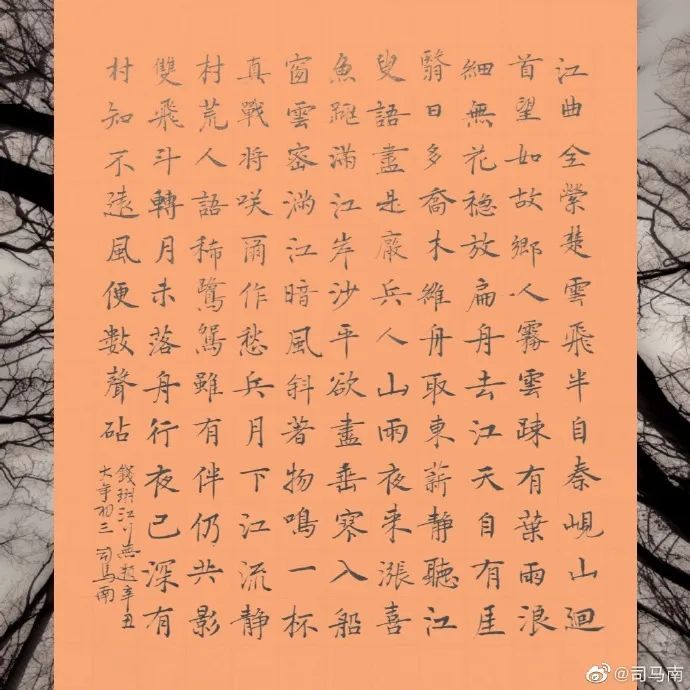 江曲全縈楚雲飛半自秦峴山迴
首望如故鄉人霧雲疎有葉雨浪
細無花穏放扁舟去江天自有厓
翳日多喬木維舟取東薪靜聽江
叟語盡是廠兵人山雨夜来漲喜
魚跑滿江岸沙平欲盡垂寥入船
窗雲密滿江暗風斜著物鳴一杯
真戰将咲爾作愁兵月下江流靜
村荒人語稀鷺鴛雖有伴仍共影
雙飛斗轉月未落舟行夜已深有
村知不遠風便數聲砧
錢珝江行無題辛丑
大年初三 司馬南
@司马南